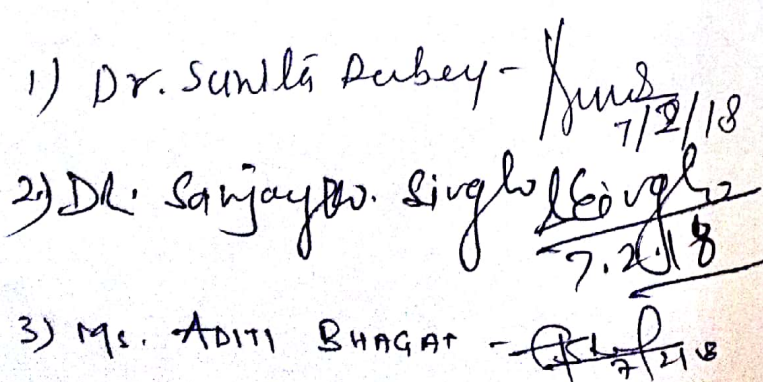 1) Dr. Sunita Dubey - 7/2/18
2) DR. Sanjay Singh Singh 7.2.18
3) Ms. ADITI BHAGAT - 7/2/18